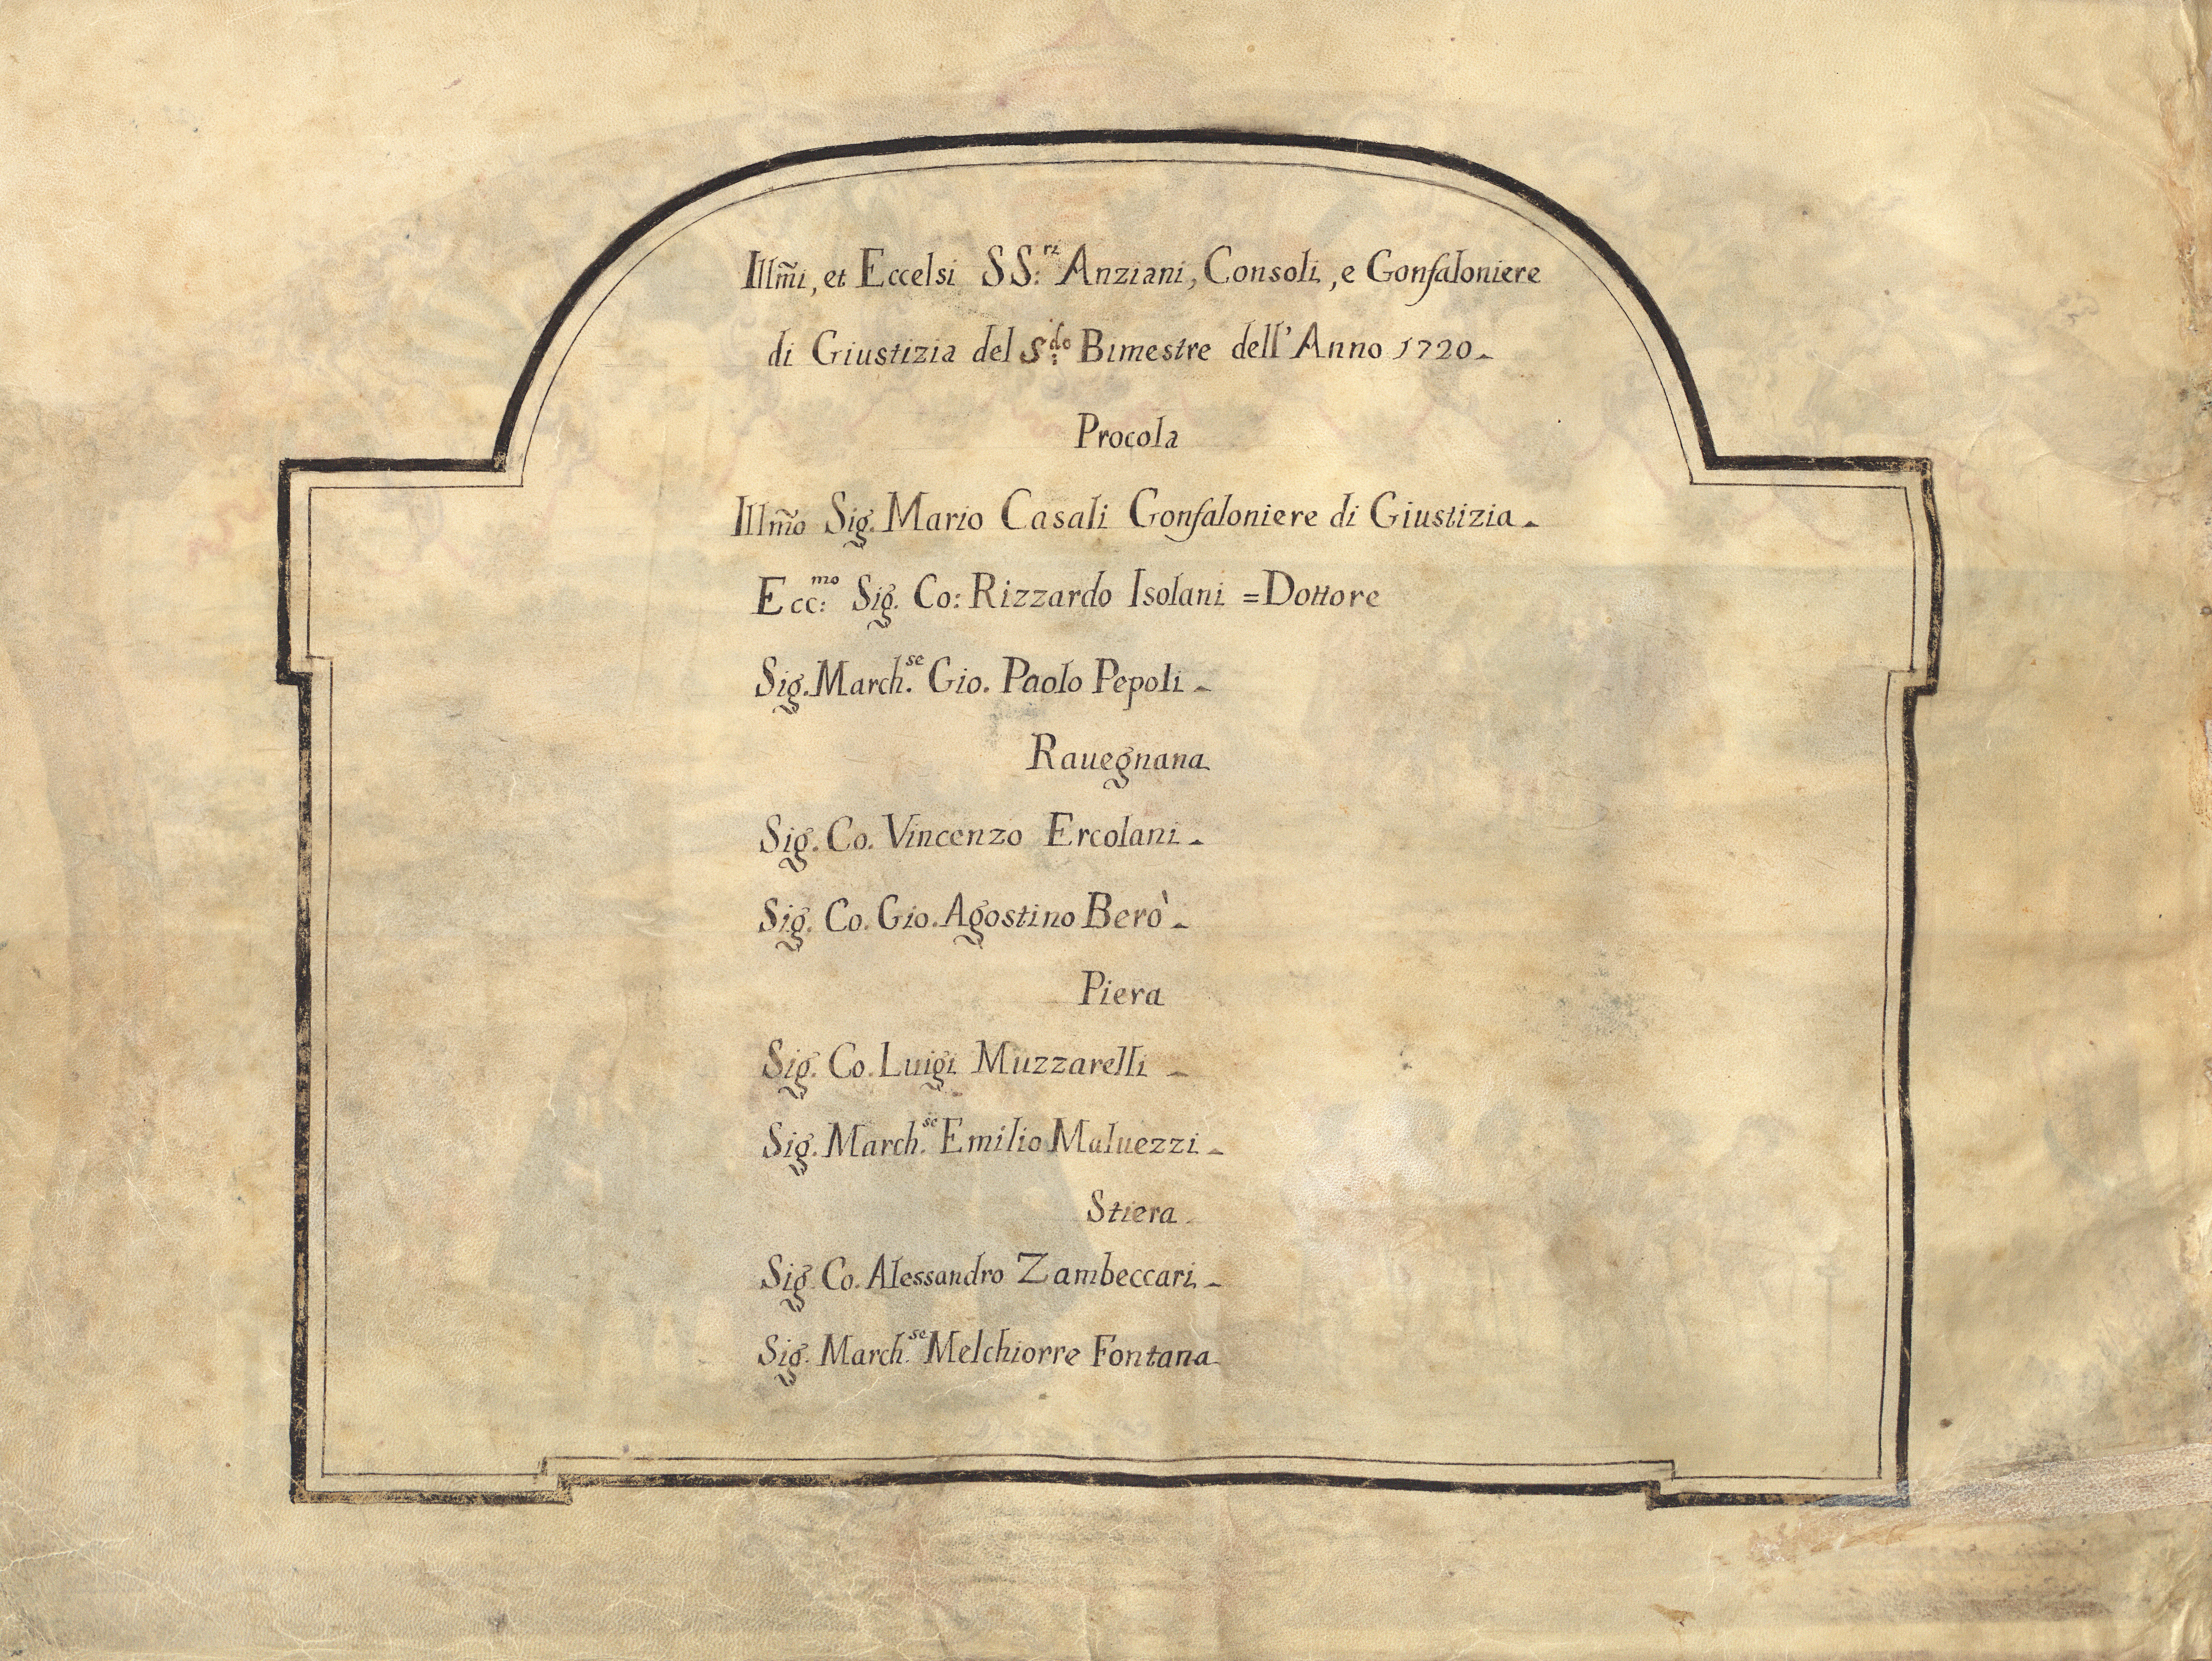 Illm̃i, et Eccelsi SS:ri Anziani, Consoli, e Gonfaloniere
di Giustizia del S:do Bimestre dell'Anno 1720.
Procola
Illm̃o Sig. Mario Casali Gonfaloniere di Giustizia.
Ecc:mo Sig. Co: Rizzardo Isolani = Dottore
Sig. March.se Gio. Paolo Pepoli.
Rauegnana
Sig. Co. Vincenzo Ercolani.
Sig. Co. Gio. Agostino Berò.
Piera
Sig. Co. Luigi Muzzarelli.
Sig. March.se Emilio Maluezzi.
Stiera
Sig. Co. Alessandro Zambeccari.
Sig. March.se Melchiorre Fontana